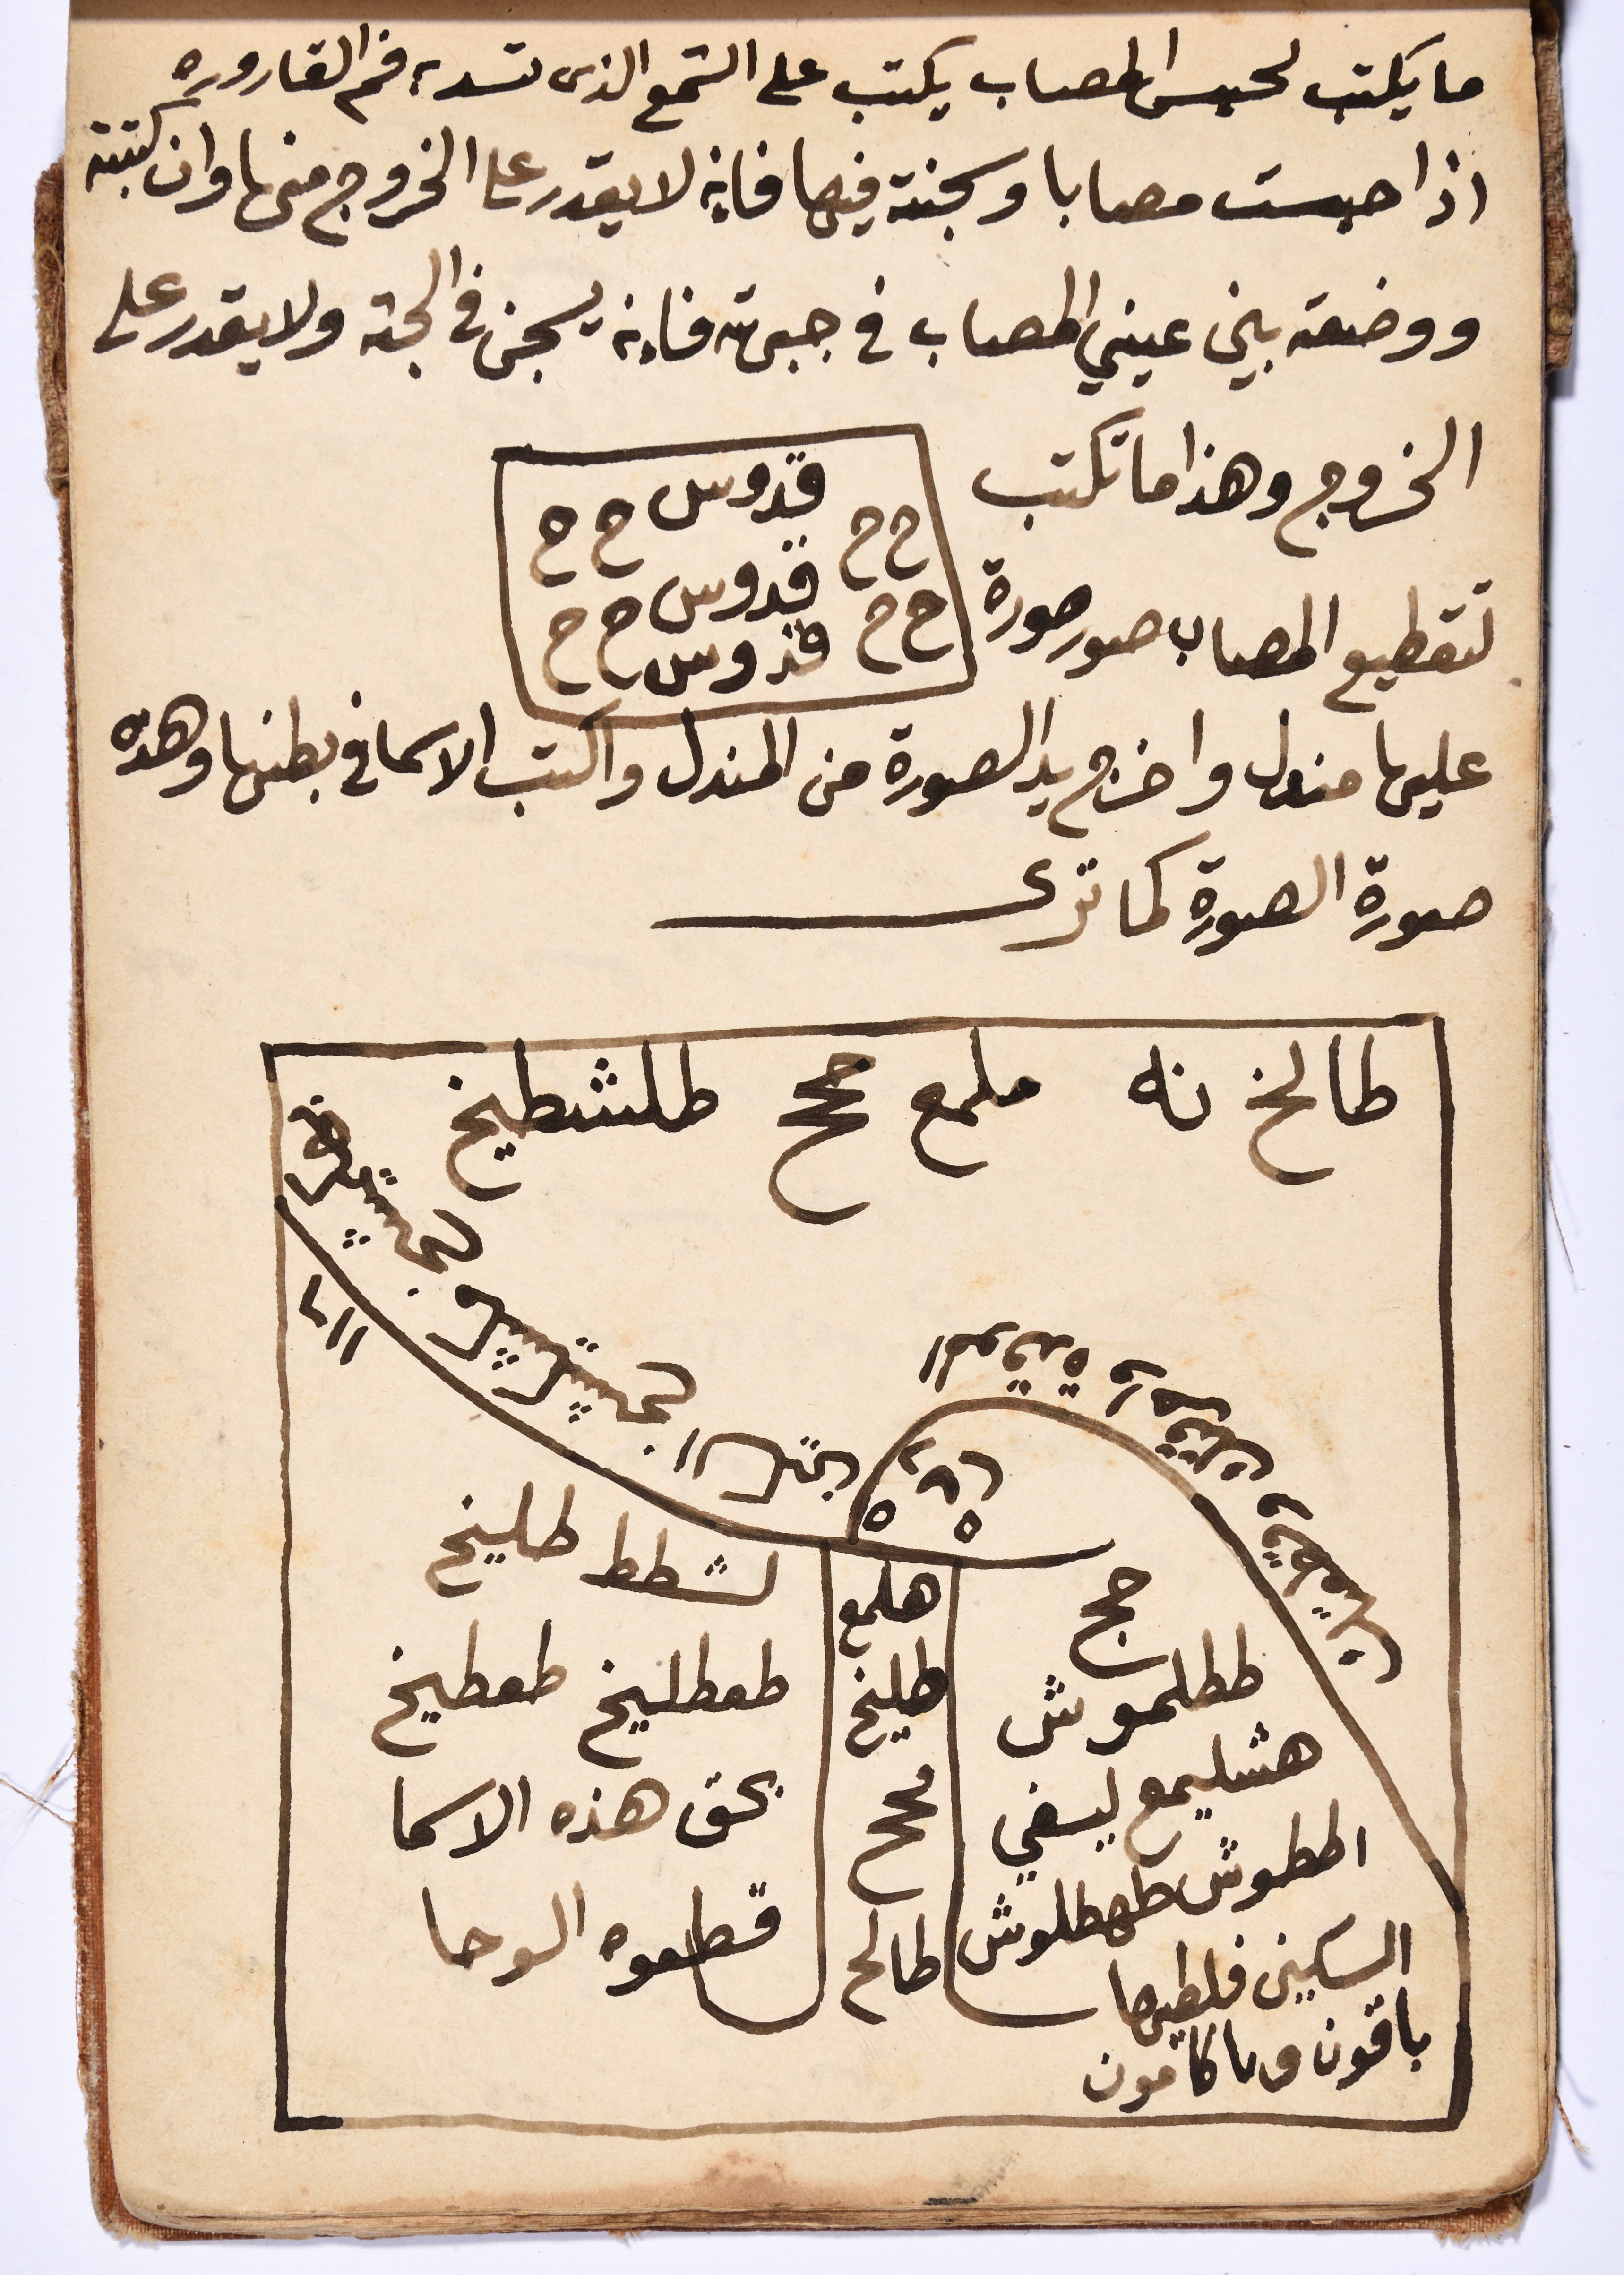 ما يكتب لحبس المصاب يكتب على الشمع الذى تسد به فم القاروره
اذا حبست مصابا وسجنته فيها فانه لا يقدر على الخروج منها وان كتبته
ووضعته بين عيني المصاب في جبهته فانه يسجن في الجثه ولا يقدر على
الخروج وهذا ما تكتب
قدوس
ح ح ح ح
قدوس
ح ح ح ح
قدوس
لتقطيع المصاب صور صورة
عليها مندل واخرج يد الصورة من المندل واكتب الاسما في بطنها وهذه
صورة الصورة كما ترى
طالخ نه ملمع ححح طلشطيخ
لشطط طليخ
طعطليخ طعطيخ
بحق هذه الاسما
قطعوه الوحا
هلمع
طليخ
ححح
طالح
ححح
ططلموش
هشليمع ليسفي
اططوش طهطلوش
السكين فلطيرها
باقون وما كانون